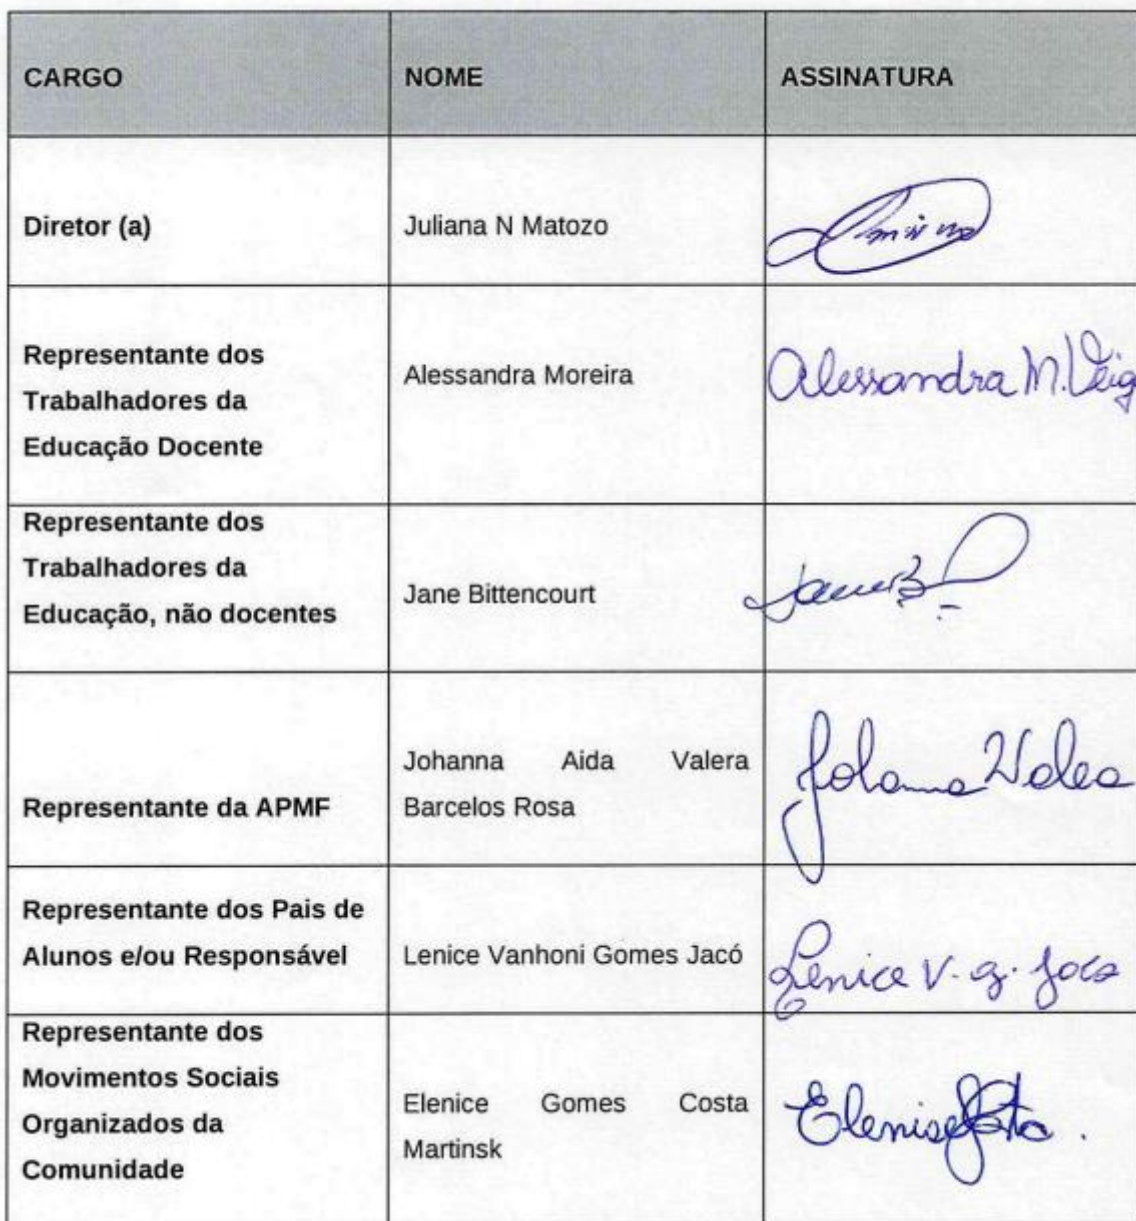 CARGO NOME ASSINATURA
Diretor (a) Juliana N Matozo
Representante dos
Trabalhadores da
Educação Docente
Alessandra Moreira
Alessandra M. Veig
Representante dos
Trabalhadores da
Educação, não docentes
Jane Bittencourt
Representante da APMF
Johanna Aida Valera
Barcelos Rosa
Representante dos Pais de
Alunos e/ou Responsável
Lenice Vanhoni Gomes Jacó
Lenice V. G. Jacó
Representante dos
Movimentos Sociais
Organizados da
Comunidade
Elenice Gomes Costa
Martinsk